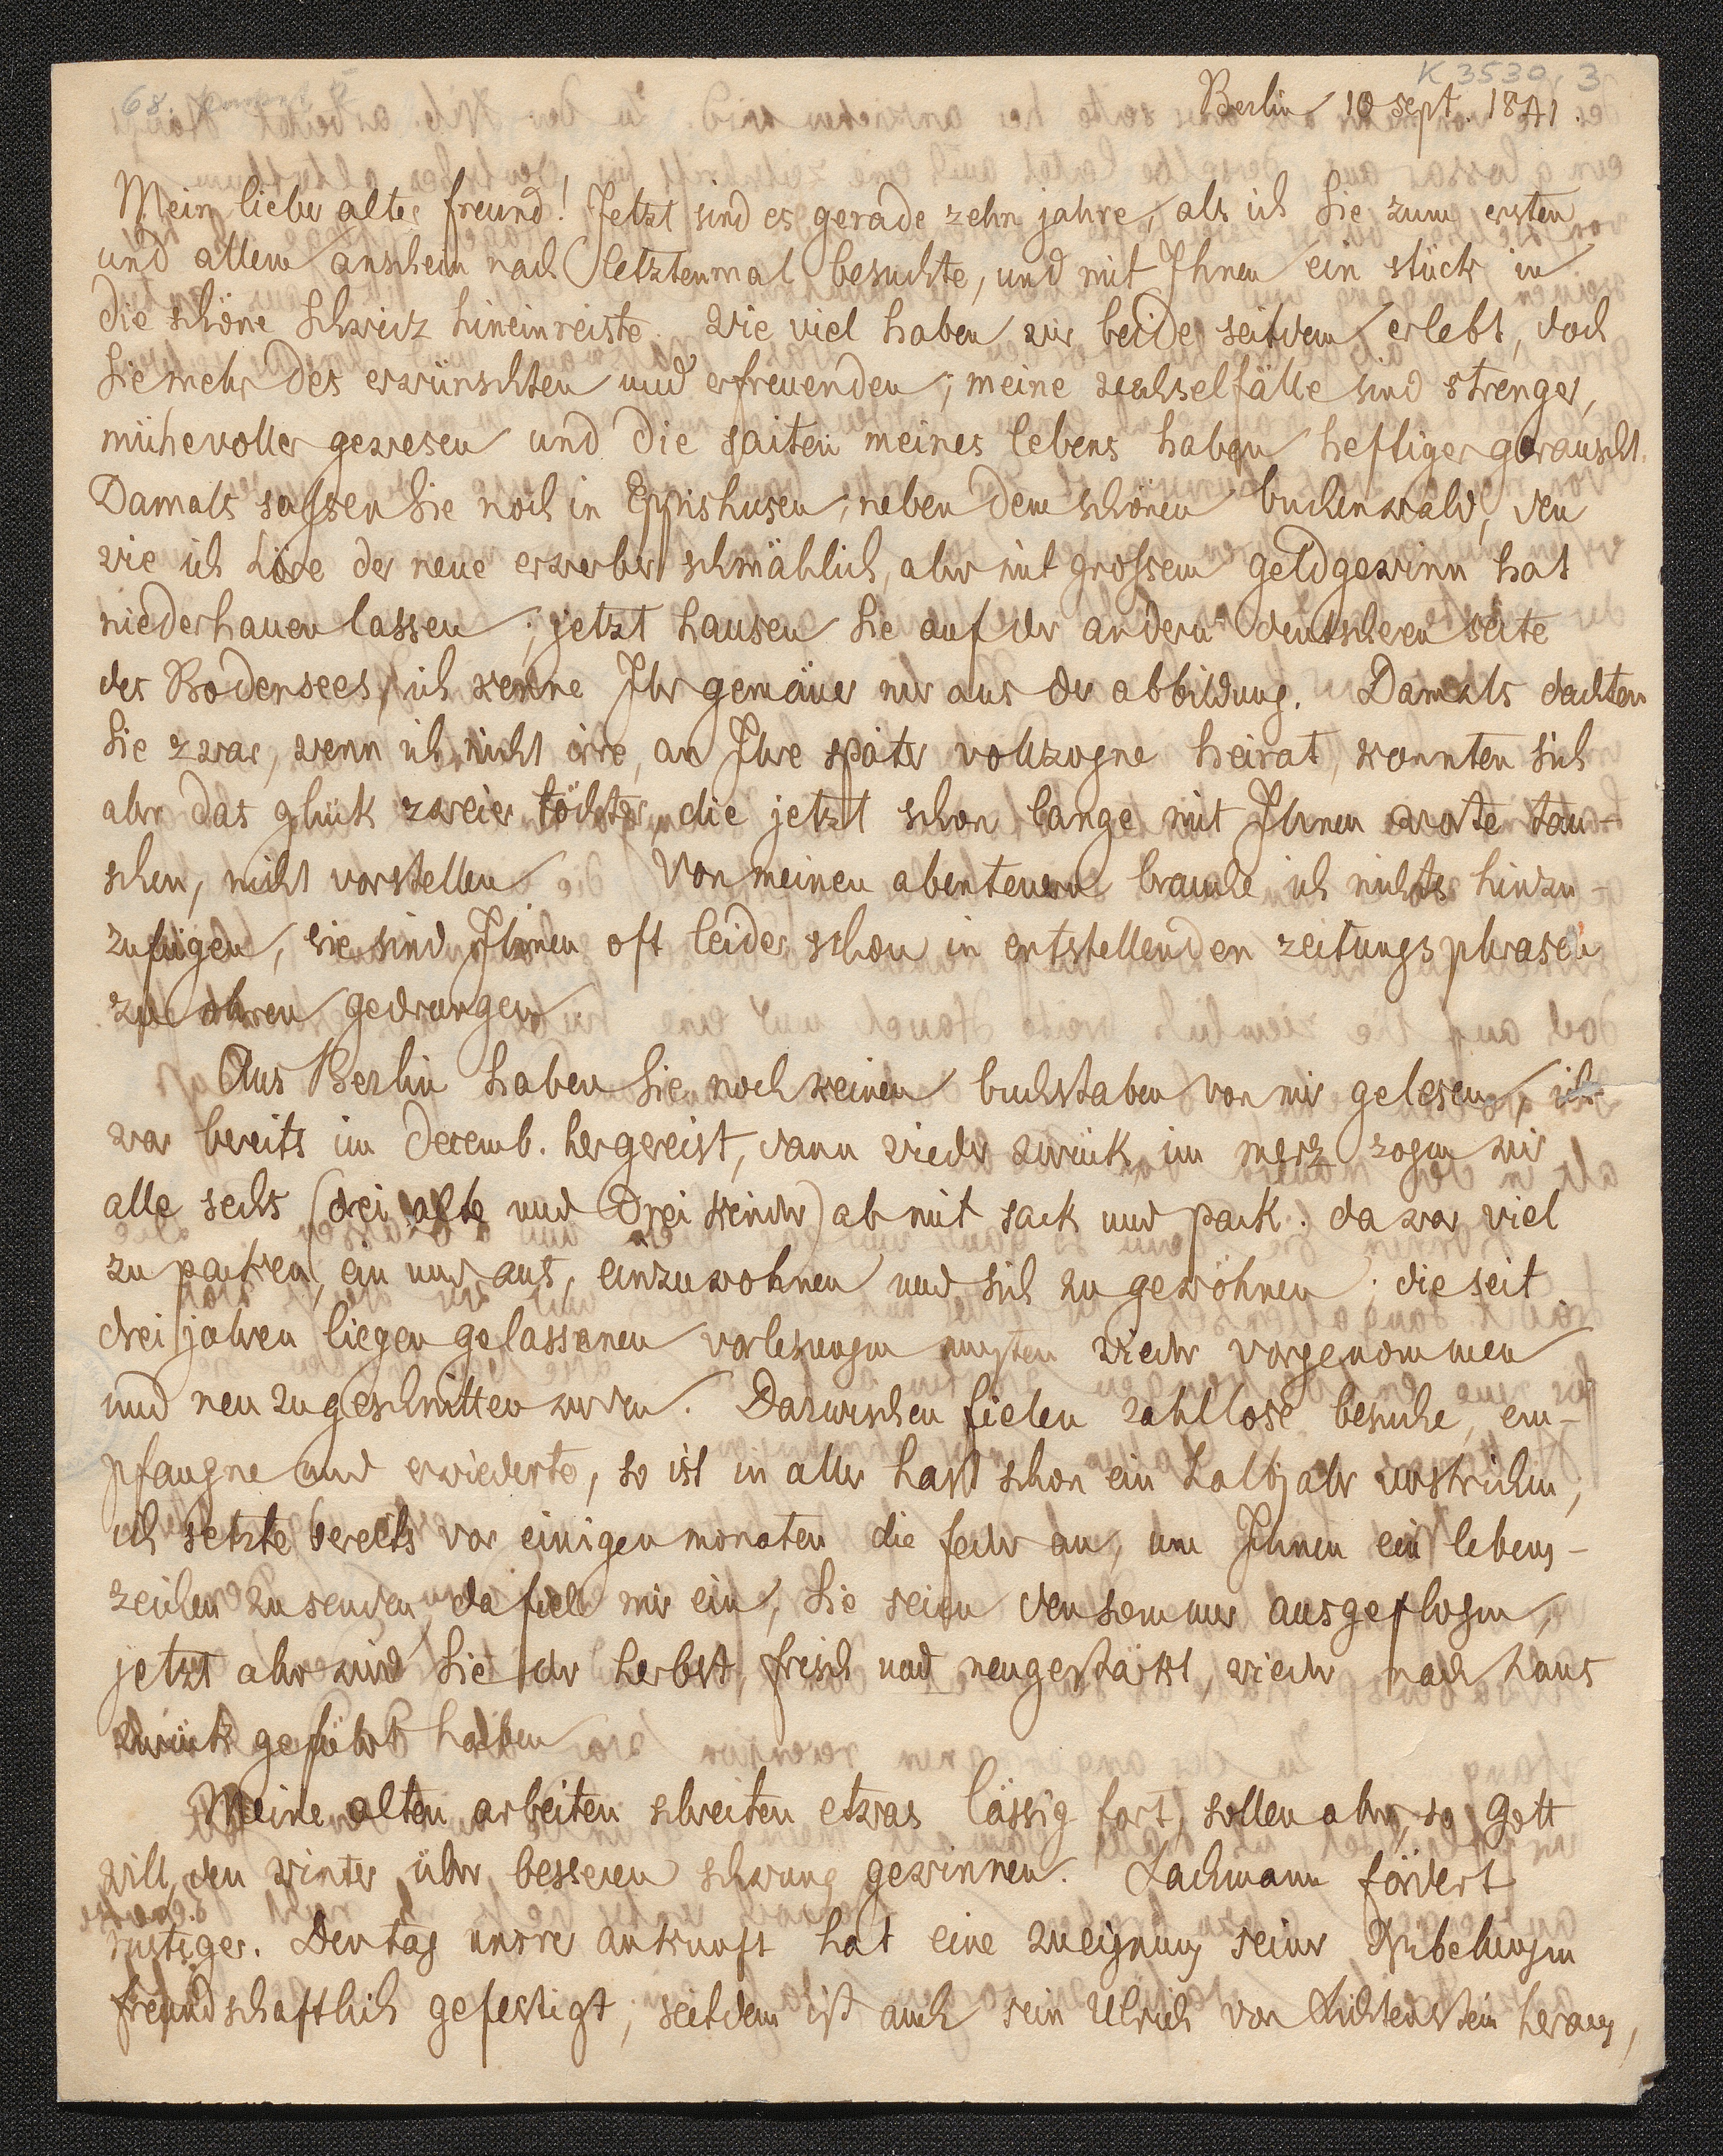 K 3530, 3
68.
Berlin 10 sept. 1841.
Mein lieber alter freund! Jetzt sind es gerade zehn jahre, als ich Sie zum ersten
und allem anschein nach letztenmal besuchte, und mit Ihnen ein stück in
die schöne Schweiz hineinreiste. wie viel haben wir beide seitdem erlebt, doch
Sie mehr des erwünschten und erfreuenden; meine wechselfälle sind strenger,
mühevoller gewesen und die saiten meines lebens haben heftiger gerauscht.
Damals saſsen Sie noch in Eppishusen, neben dem schönen buchenwald, den
wie ich höre der neue erwerber schmählich, aber mit groſsem geldgewinn hat
niederhauen lassen; jetzt hausen Sie auf der andern deutscheren seite
des Bodensees, ich kenne Ihr gemäuer nur aus der abbildung. Damals dachten
Sie zwar, wenn ich nicht irre, an Ihre später vollzogne heirat, konnten sich
aber das glück zweier töchter, die jetzt schon lange mit Ihnen worte tau-
schen, nicht vorstellen. Von meinen abenteuern brauche ich nichts hinzu-
zufügen, sie sind Ihnen oft leider schon in entstellenden zeitungsphrasen
zu ohren gedrungen.
Aus Berlin haben Sie noch keinen buchstaben von mir gelesen, ich
war bereits im decemb. hergereist, dann wieder zurück, im merz zogen wir
alle sechs (drei alte und drei kinder) ab mit sack und pack. da war viel
zu packen, ein und aus, einzuwohnen und sich zu gewöhnen; die seit
drei jahren liegen gelassenen vorlesungen musten wieder vorgenommen
und neu zugeschnitten werden. Dazwischen fielen zahllose besuche, em-
pfangne und erwiederte, so ist in aller hast schon ein halbjahr verstrichen;
ich setzte bereits vor einigen monaten die feder an, um Ihnen ein lebens-
zeichen zu senden, da fiel mir ein, Sie seien den sommer ausgeflogen,
jetzt aber wird Sie der herbst, frisch und neugestärkt, wieder nach haus
zurück geführt haben.
Meine alten arbeiten schreiten etwas lässig fort, sollen aber, so Gott
will, den winter über besseren schwung gewinnen. Lachmann fördert
rüstiger. Den tag unsrer ankunft hat eine zueignung seiner Nibelungen
freundschaftlich gefestigt, seitdem ist auch sein Ulrich von Lichtenstein heraus,